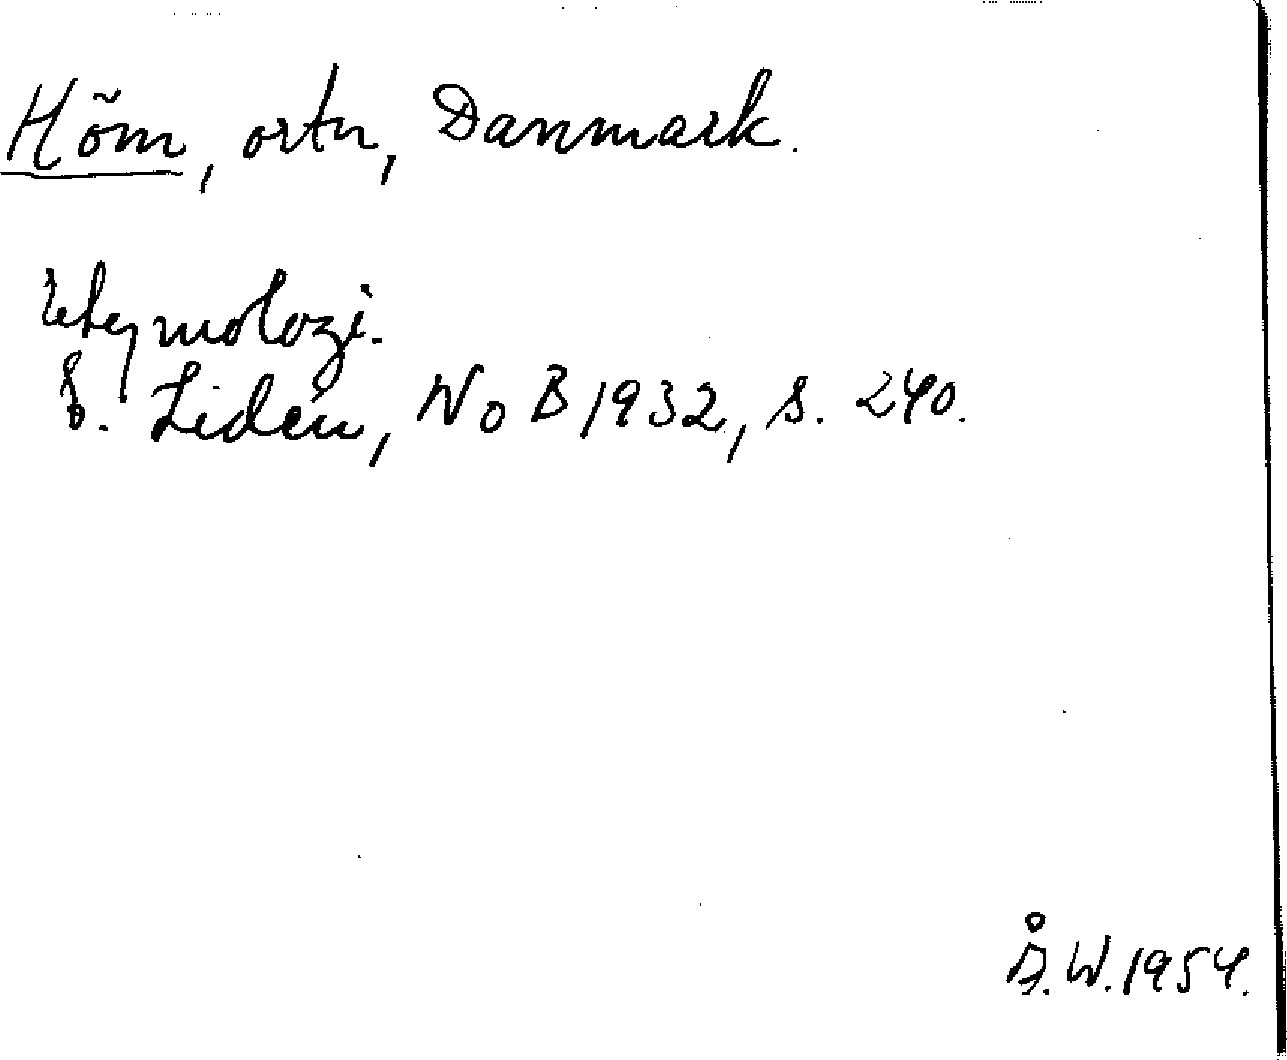 Hõm, ortn, Danmark.
Etymologi.
E. Lidén, NoB 1932, s. 240.
Å.W. 1954.